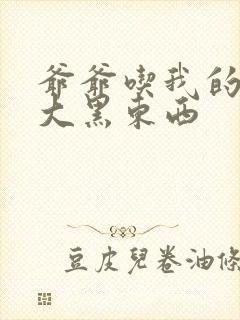 爺爺喫我的
大黑東西
豆皮兒卷油條